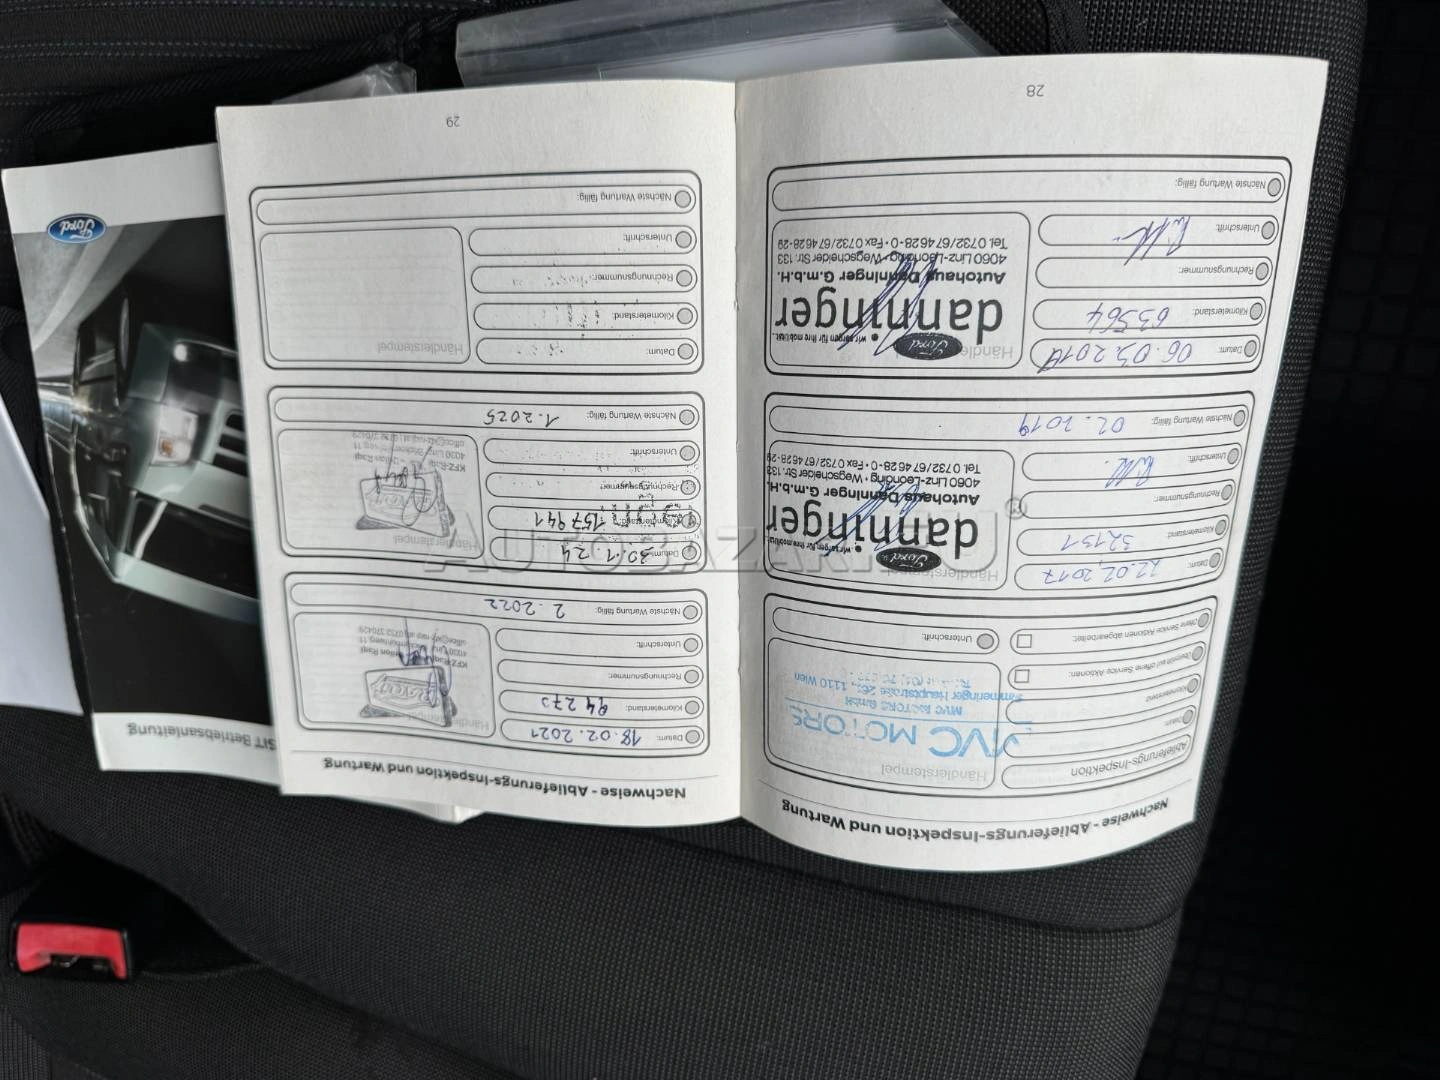 Nachweise - Ablieferungs-Inspektion und Wartung
Ablieferungs-Inspektion
Datum:
Kilometerstand:
Überprüft auf offene Service Aktionen:
Offene Service Aktionen abgearbeitet:
Händlerstempel
MVC MOTORS
MVC MOTORS GmbH
Simmeringer Hauptstrasse 261, 1110 Wien
Unterschrift:
Datum:
22.02.2017
Kilometerstand:
32131
Rechnungsnummer:
Unterschrift:
Nächste Wartung fällig:
02.2019
Händlerstempel
Ford
wir sorgen für Ihre mobilität.
danninger
Autohaus Danninger G.m.b.H.
4060 Linz-Leonding • Wegscheider Str. 133
Tel. 0732/67 46 28-0 • Fax 0732/67 46 28-29
Datum:
Kilometerstand:
63564
Rechnungsnummer:
Unterschrift:
Nächste Wartung fällig:
Händlerstempel
Ford
wir sorgen für Ihre mobilität.
danninger
Autohaus Danninger G.m.b.H.
4060 Linz-Leonding • Wegscheider Str. 133
Tel. 0732/67 46 28-0 • Fax 0732/67 46 28-29
28
Nachweise - Ablieferungs-Inspektion und Wartung
Datum:
18.02.2021
Kilometerstand:
94270
Rechnungsnummer:
Unterschrift:
Nächste Wartung fällig:
2.2022
Händlerstempel
KFZ-Raqi
Datum:
30.1.24
Kilometerstand:
157941
Rechnungsnummer:
Unterschrift:
Nächste Wartung fällig:
1.2025
Händlerstempel
KFZ-Raqi
Datum:
Kilometerstand:
Rechnungsnummer:
Unterschrift:
Nächste Wartung fällig:
Händlerstempel
29
Ford
SIT Betriebsanleitung
AUTOBAZAR.EU®